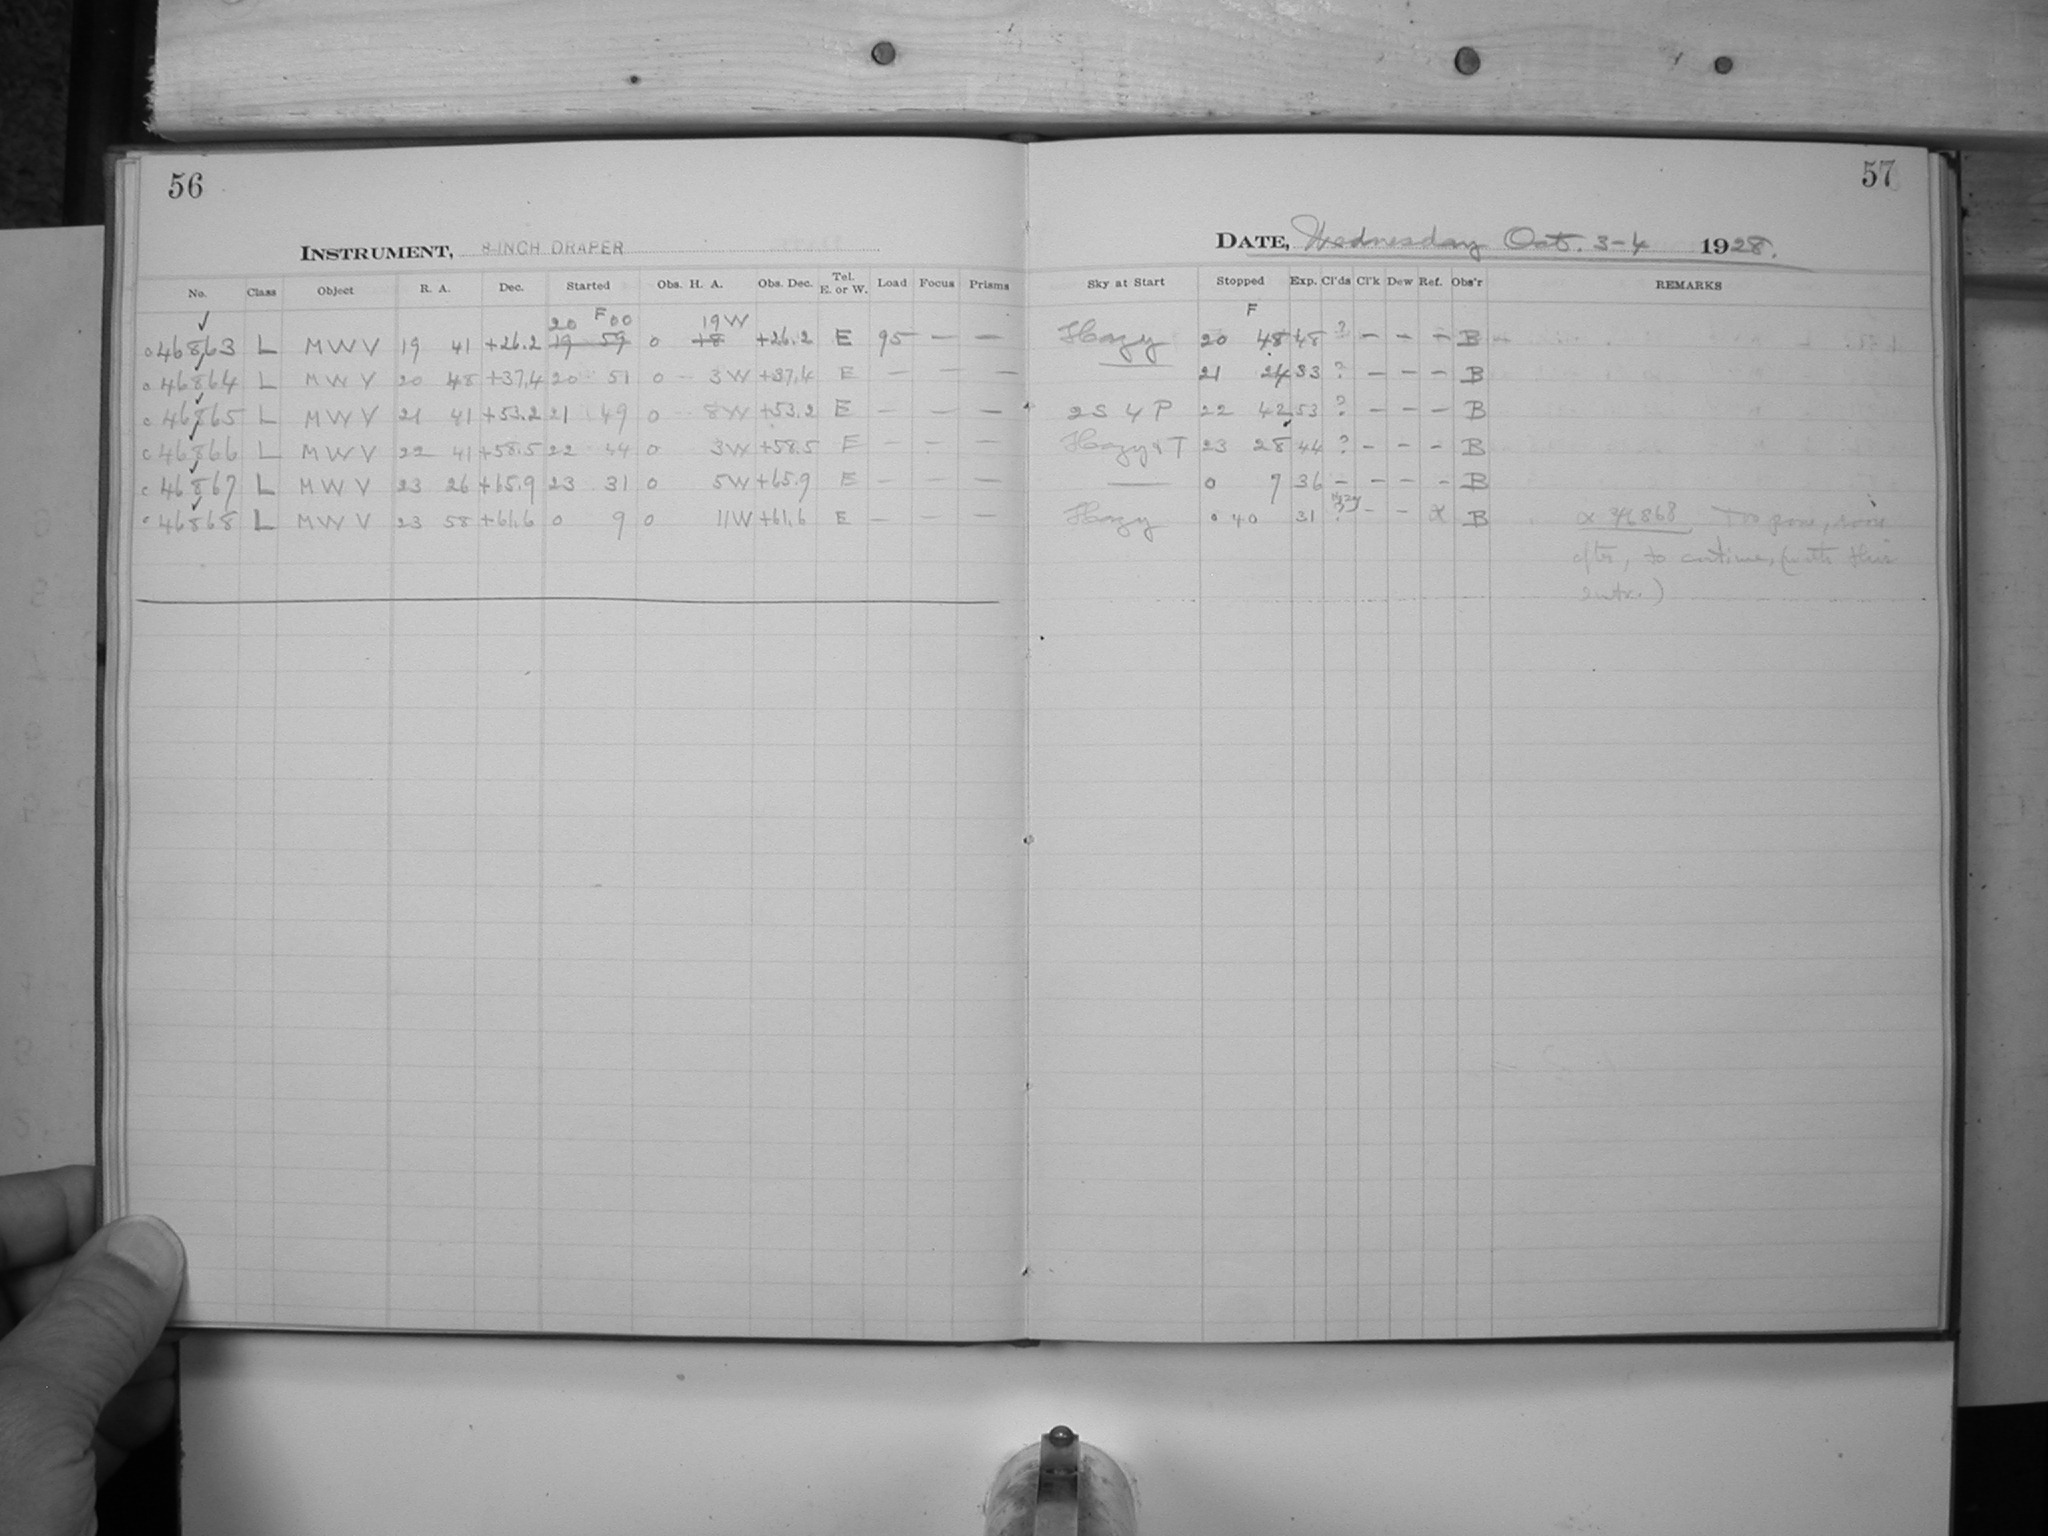 56
57
INSTRUMENT, 8-INCH DRAPER
DATE, Wednesday Oct. 3-4 1928.
No. Class Object R. A. Dec. Started Obs. H. A. Obs. Dec. Tel. E. or W. Load Focus Prisms Sky at Start Stopped Exp. Cl'ds Cl'k Dew Ref. Obs'r REMARKS
20 F 00 19W F
46863 L MWV 19 41 +26.2 19 59 0 18 +26.2 E 95 — — Hazy 20 48 48 ? - - - B
46864 L MWV 20 48 +37.4 20 51 0 3W +37.4 E — — — 21 24 33 ? - - - B
46865 L MWV 21 41 +53.2 21 49 0 8W +53.2 E — — — 2S 4P 22 42 53 ? - - - B
46866 L MWV 22 41 +58.5 22 44 0 3W +58.5 E — — — Hazy & T 23 28 44 ? - - - B
46867 L MWV 23 26 +65.9 23 31 0 5W +65.9 E — — — — 0 7 36 - - - - B
46868 L MWV 23 58 +61.6 0 9 0 11W +61.6 E — — — Hazy 0 40 31 ? - - α B α 46868 Too poor, soon
after, to continue, (with this